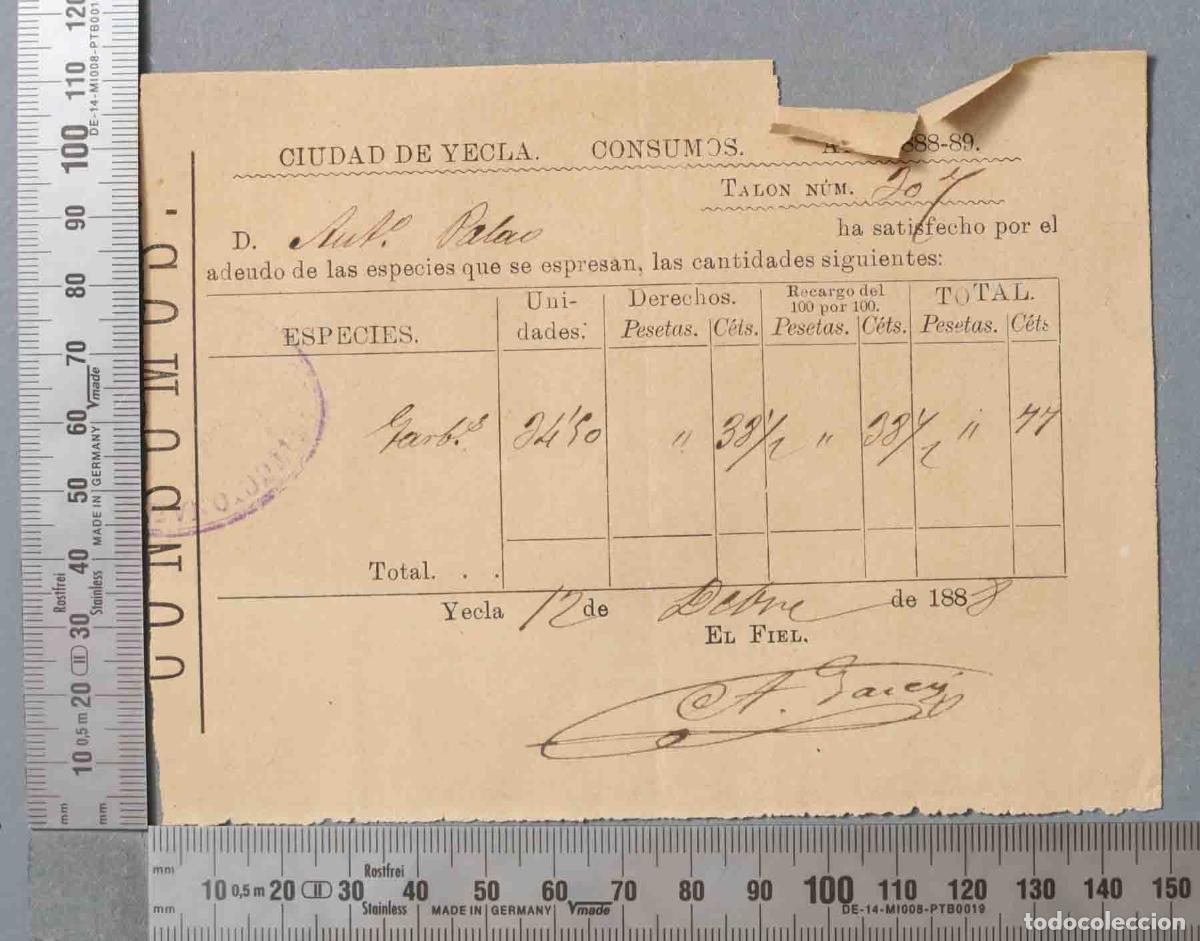 CIUDAD DE YECLA. CONSUMOS. A 888-89.
TALON NÚM. 207
D. Ant.º Palao ha satisfecho por el
adeudo de las especies que se espresan, las cantidades siguientes:
ESPECIES. Uni-dades. Derechos. Recargo del 100 por 100. TOTAL.
Pesetas. Céts. Pesetas. Céts. Pesetas. Céts
Garb.s 24'50 " 38 1/2 " 38 1/2 " 77
Total. . .
Yecla 12 de Dbre de 1888
EL FIEL.
A. Garcy
CONSUMOS.
mm 10 0,5 m 20 II 30 40 50 60 70 80 90 100 110 120
Rostfrei
Stainless MADE IN GERMANY Vmade DE-14-MI008-PTB0019
mm 10 0,5 m 20 II 30 40 50 60 70 80 90 100 110 120 130 140 150
Rostfrei
Stainless MADE IN GERMANY Vmade DE-14-MI008-PTB0019
todocoleccion